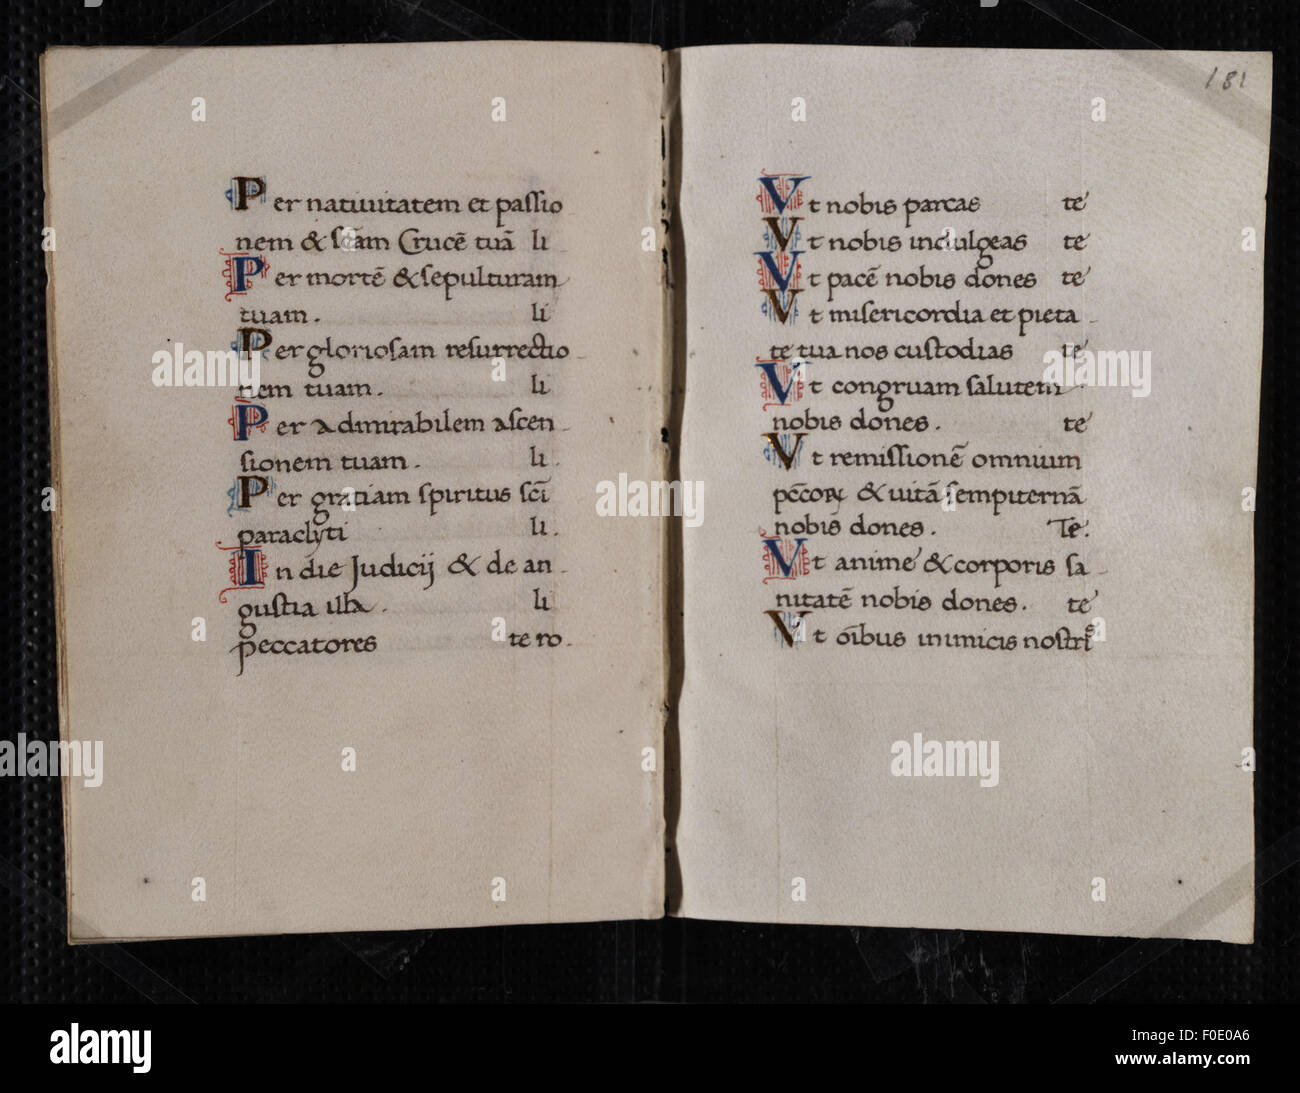 Per natiuitatem et passio
nem & scãm Crucẽ tuã li
Per mortẽ & sepulturam
tuam. li
Per gloriosam resurrectio
nem tuam. li
Per admirabilem ascen
sionem tuam. li.
Per gratiam spiritus scĩ
paraclyti li.
In die Judicij & de an
gustia illa. li
peccatores te ro.
181
Vt nobis parcas te
Vt nobis indulgeas te
Vt pacẽ nobis dones te
Vt misericordia et pieta
te tua nos custodias te
Vt congruam salutem
nobis dones. te
Vt remissionẽ omnium
pc̃coꝝ & uitã sempiternã
nobis dones. Te.
Vt anime & corporis sa
nitatẽ nobis dones. te
Vt oĩbus inimicis nostrꝰ
alamy
alamy
Image ID: F0E0A6
www.alamy.com